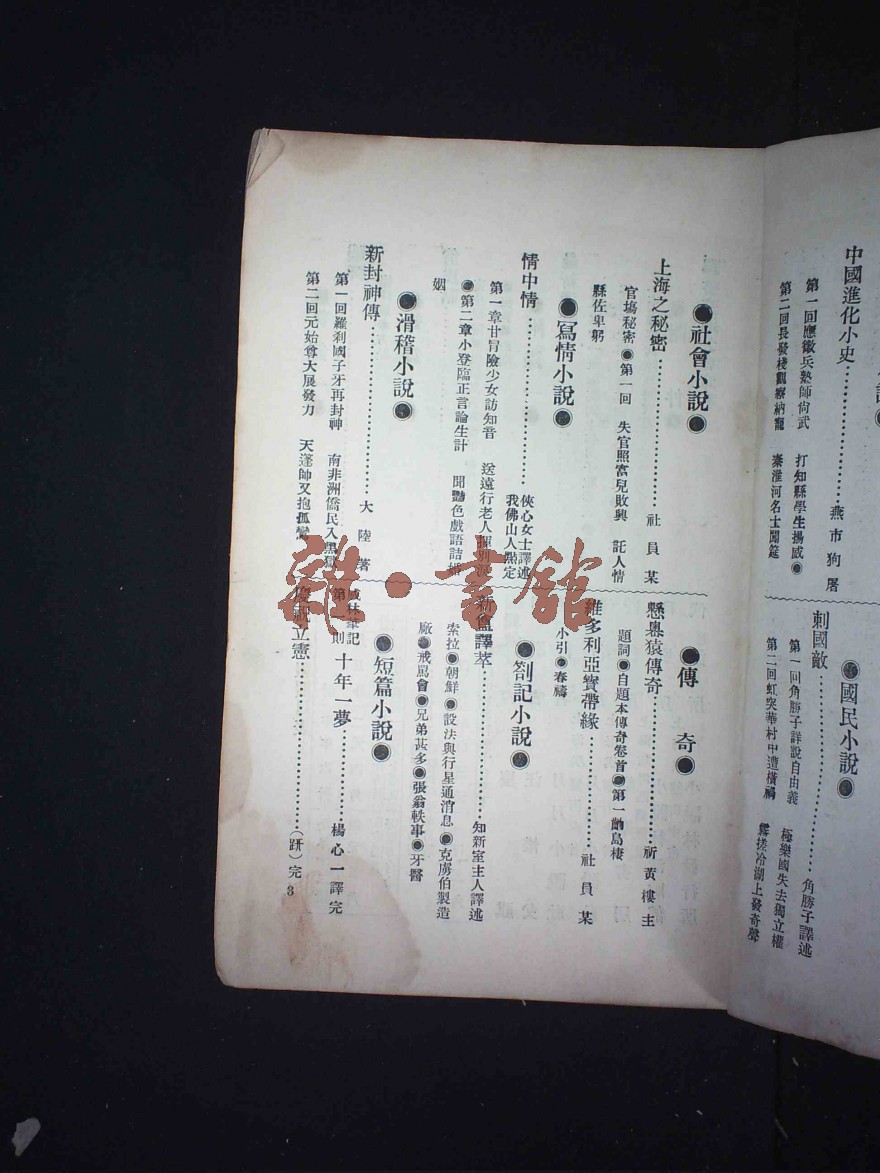 中國進化小史
燕市狗屠
第一回應徵兵塾師尙武　打知縣學生揚威●
第二回長發棧觀察納寵　秦淮河名士開筵
●社會小說●
上海之秘密
社員某
官場秘密●第一回　失官照富兒敗興　託人情
縣佐卑躬
●寫情小說●
情中情
俠心女士譯述
我佛山人點定
第一章甘冒險少女訪知音　送遠行老人揮別淚
●第二章小登臨正言論生計　聞艷色戲語詰婚
姻
●滑稽小說●
新封神傳
大陸著
第一回羅刹國子牙再封神　南非洲僑民入黑獄
第二回元始尊大展發力　天蓬帥又抱孤鸞
●國民小說●
刺國敵
角勝子譯述
第一回角勝子詳說自由義　極樂國失去獨立權
第二回虹突華村中遭橫禍　霧搓冷湖上發奇聲
●傳奇●
懸嶴猿傳奇
祈黃樓主
題詞●自題本傳奇卷首●第一齣島棲
維多利亞寶帶緣
社員某
小引●春禱
●劄記小說●
新盦譯萃
知新室主人譯述
索拉●朝鮮●設法與行星通消息●克虜伯製造
廠●戒罵會●兄弟甚多●張翁軼事●牙醫
●短篇小說●
威林筆記
第一則
十年一夢
楊心一譯完
慶祝立憲
（趼）完
3
雜·書館